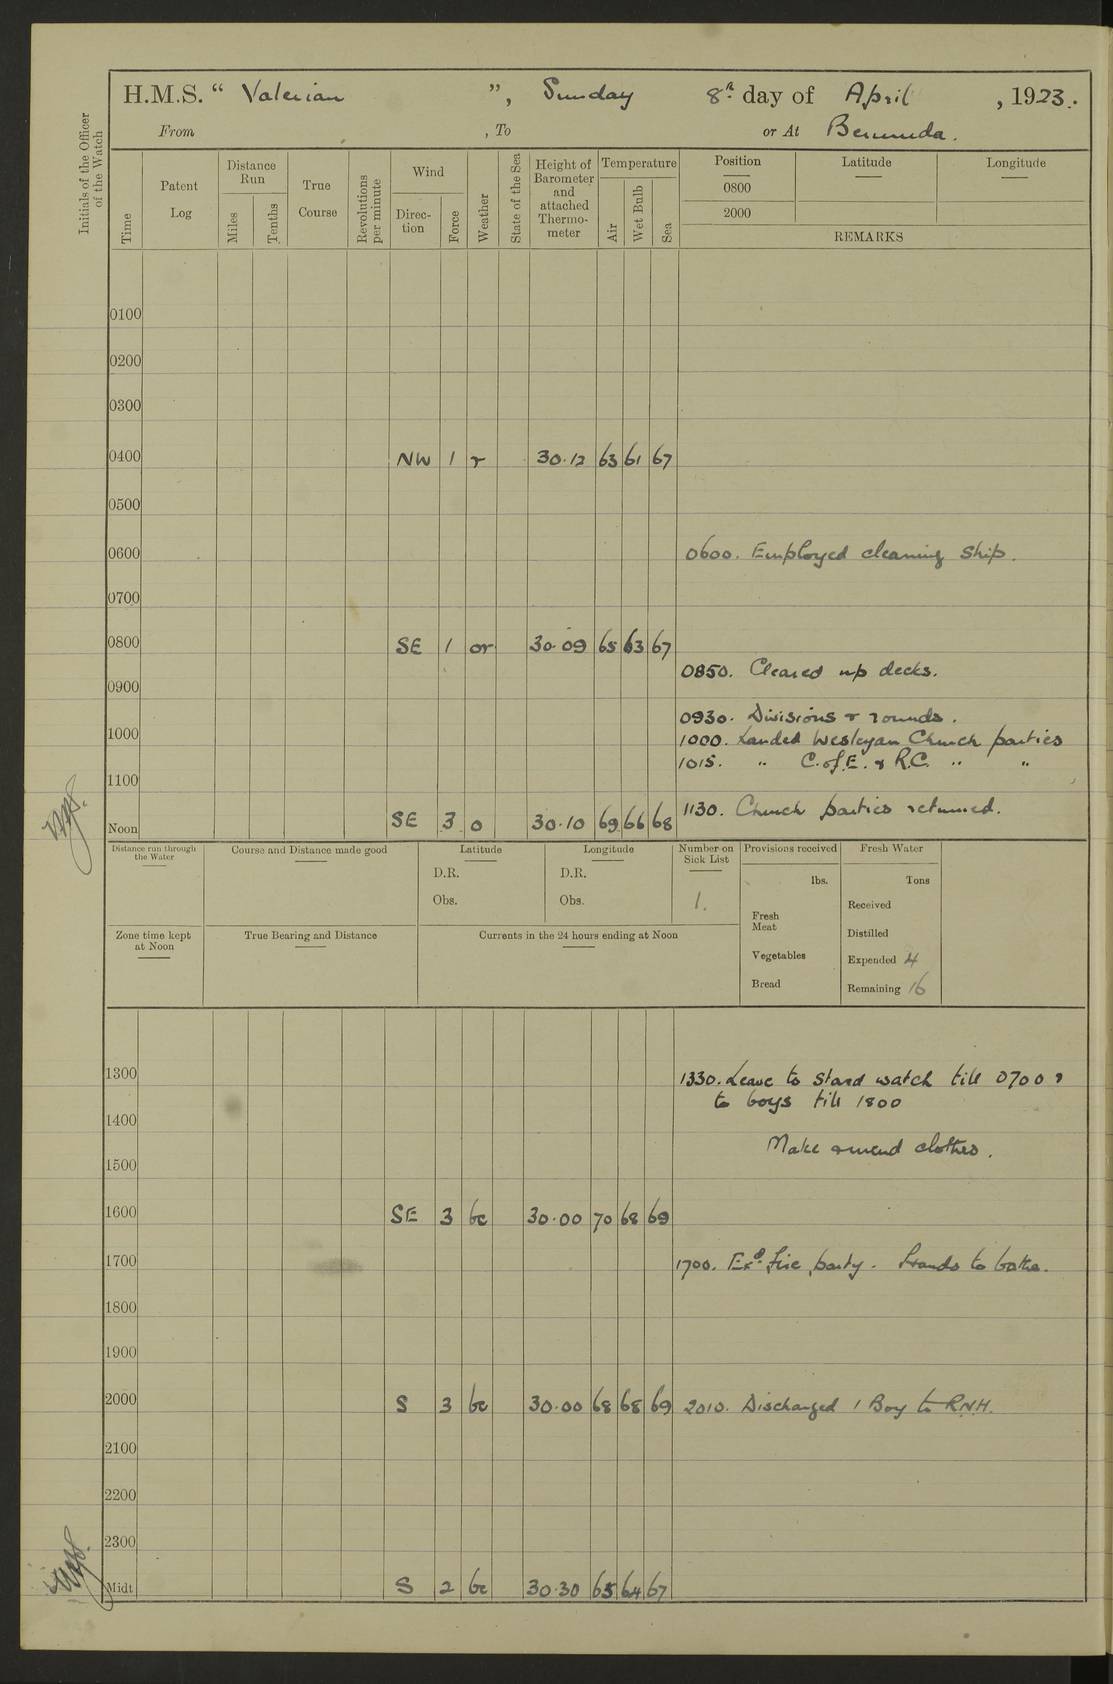 H.M.S. “ Valerian ”, Sunday 8th day of April , 1923.
From , To or At Bermuda.
Initials of the Officer of the Watch
Time
Patent Log
Distance Run
Miles
Tenths
True Course
Revolutions per minute
Wind
Direc-tion
Force
Weather
State of the Sea
Height of Barometer and attached Thermo-meter
Temperature
Air
Wet Bulb
Sea
Position Latitude Longitude
0800
2000
REMARKS
0100
0200
0300
0400 NW 1 r 30.12 63 61 67
0500
0600 0600. Employed cleaning ship.
0700
0800 SE 1 or 30.09 65 63 67
0850. Cleared up decks.
0900
0930. Divisions & rounds.
1000 1000. Landed Wesleyan Church parties
1015. " C.of.E. & R.C. " "
1100
1130. Church parties returned.
Noon SE 3 o 30.10 69 66 68
Distance run through the Water
Course and Distance made good
Latitude
D.R.
Obs.
Longitude
D.R.
Obs.
Number on Sick List
1.
Provisions received
lbs.
Fresh Meat
Vegetables
Bread
Fresh Water
Tons
Received
Distilled
Expended 4
Remaining 16
Zone time kept at Noon
True Bearing and Distance
Currents in the 24 hours ending at Noon
1300 1330. Leave to stard watch till 0700 &
to boys till 1800
1400
Make & mend clothes.
1500
1600 SE 3 bc 30.00 70 68 69
1700 1700. Exd. fire party. Hands to bathe.
1800
1900
2000 S 3 bc 30.00 68 68 69 2010. Discharged 1 Boy to R.N.H.
2100
2200
2300
Midt. S 2 bc 30.30 65 64 67